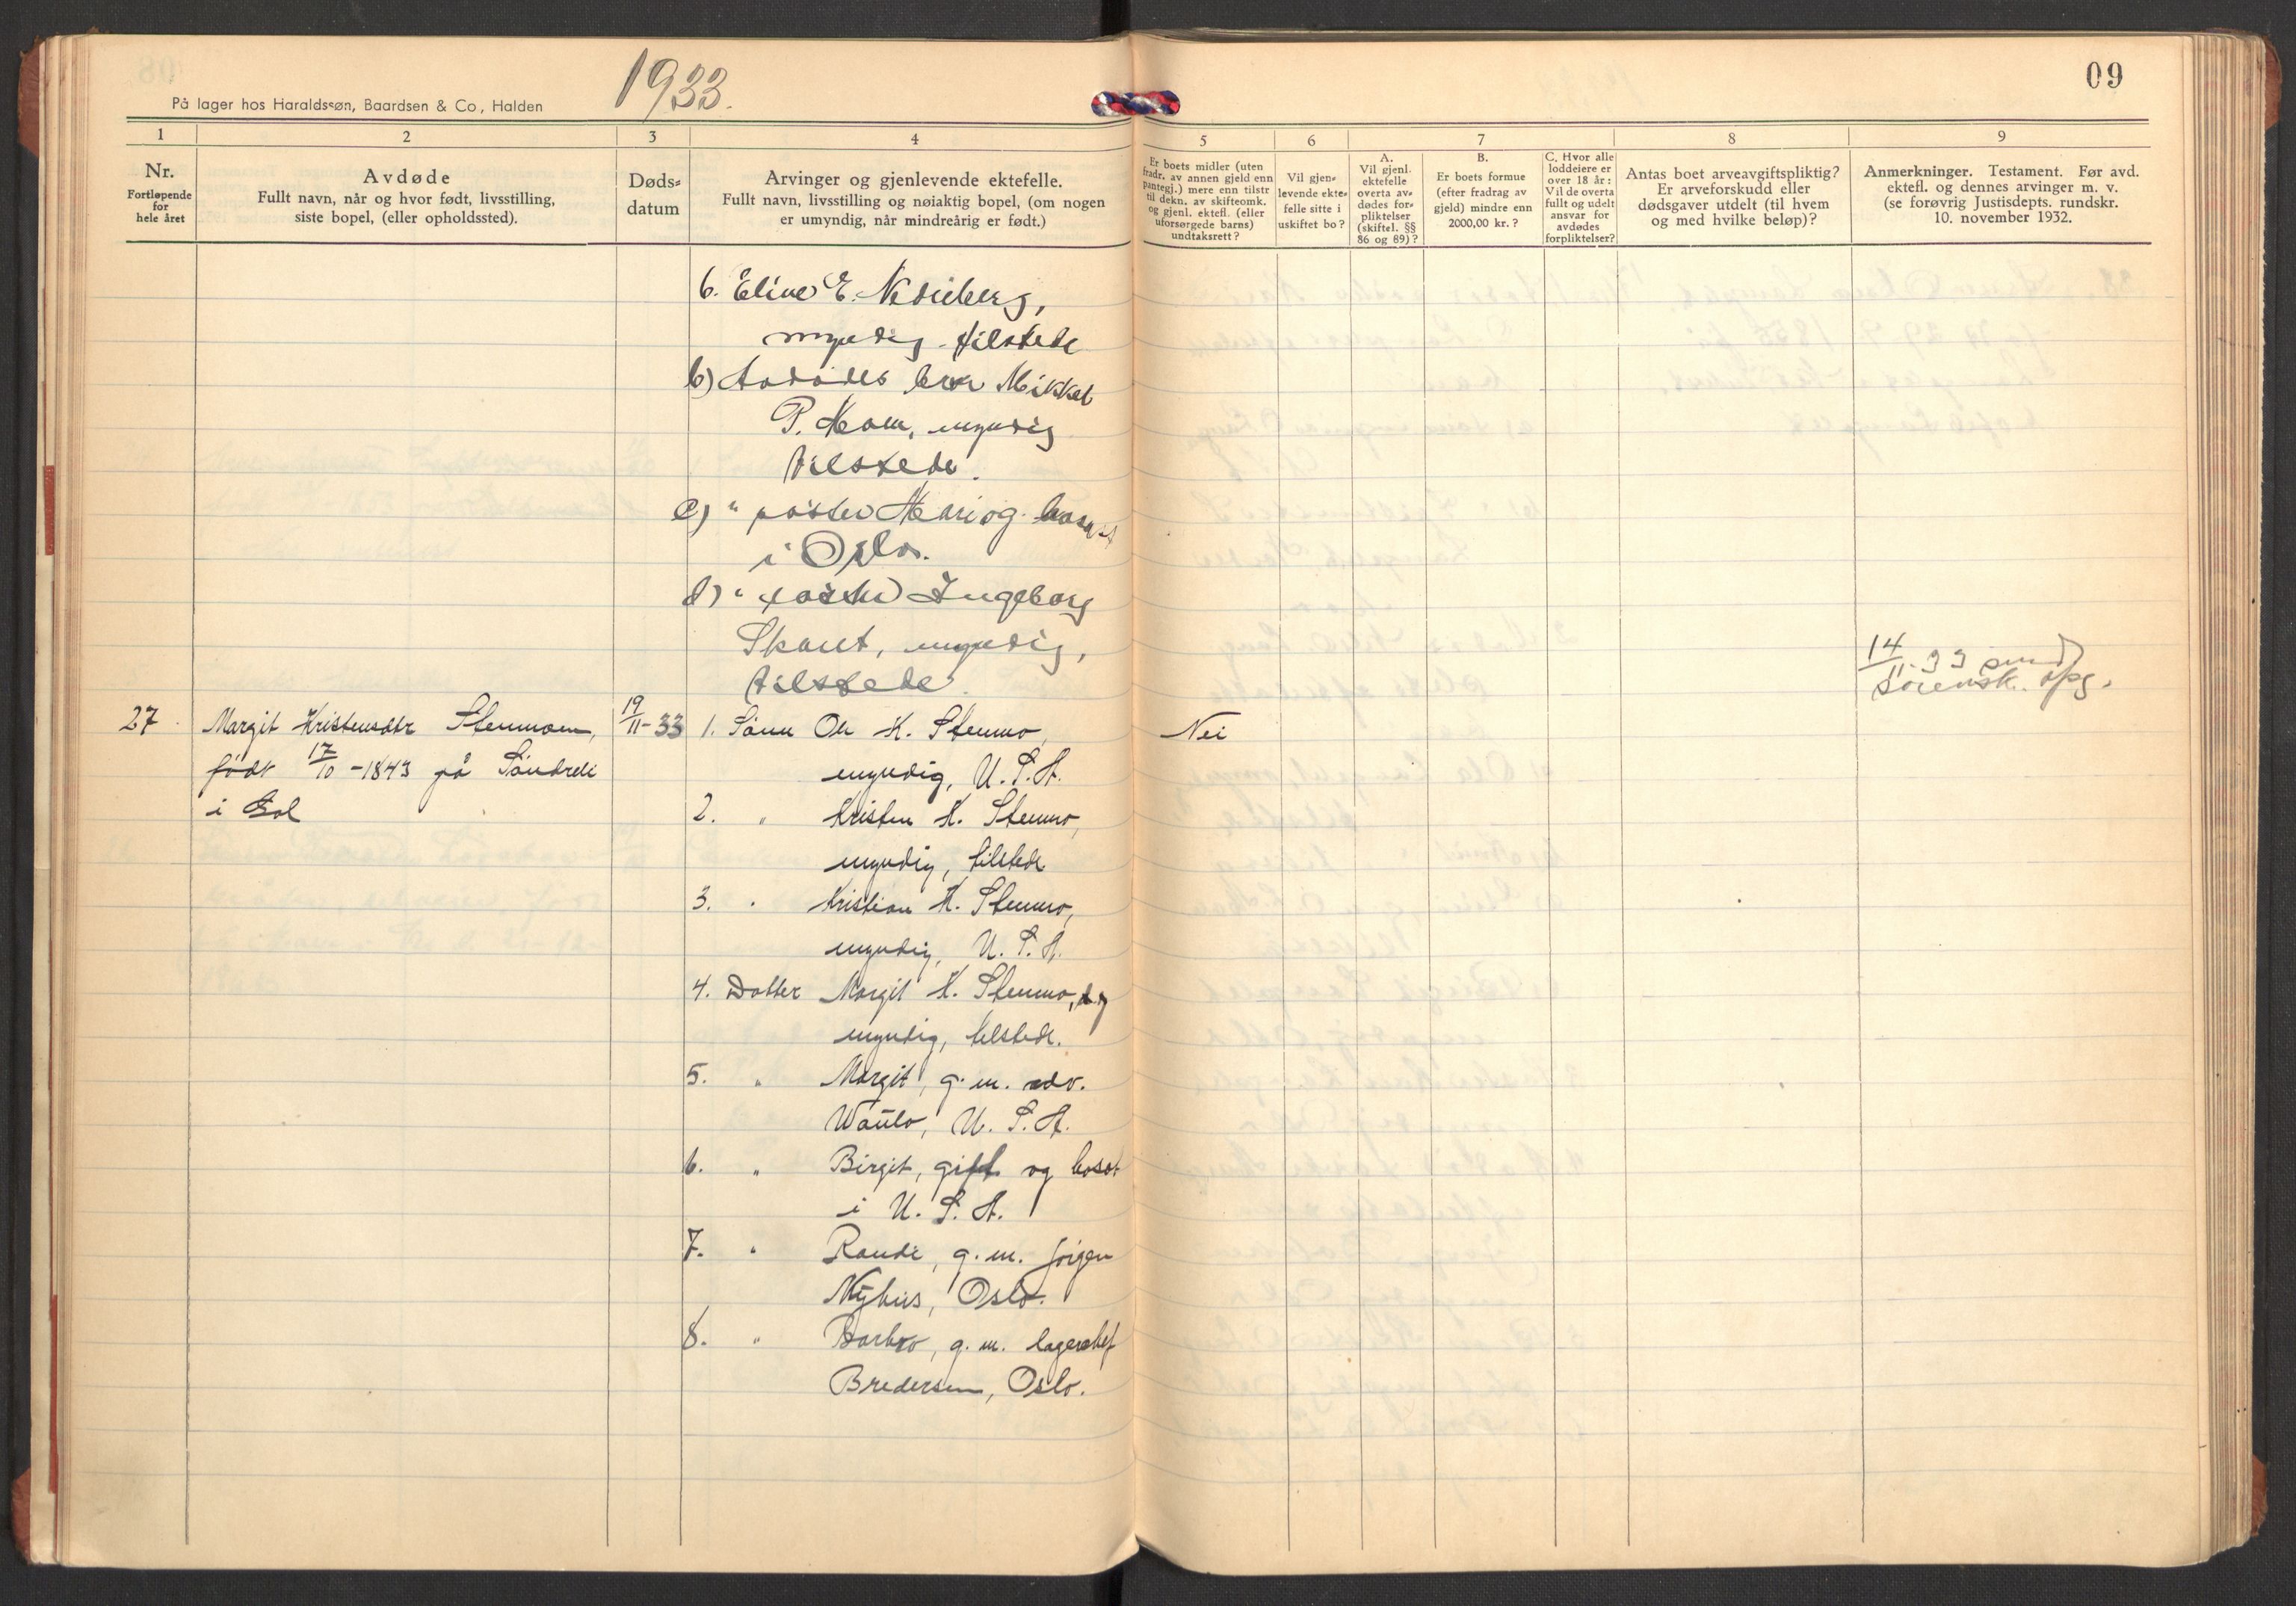 1933.
09
På lager hos Haraldssøn, Baardsen & Co., Halden
1
2
3
4
5
6
7
8
9
Nr.
Fortløpende
for
hele året
Avdøde
Fullt navn, når og hvor født, livsstilling,
siste bopel, (eller opholdssted).
Døds=
datum
Arvinger og gjenlevende ektefelle.
Fullt navn, livsstilling og nøiaktig bopel, (om nogen
er umyndig, når mindreårig er født.)
Er boets midler (uten
fradr. av annen gjeld enn
pantegj.) mere enn tilstr
til dekn. av skifteomk.
og gjenl. ektefl. (eller
uforsørgede barns)
undtaksrett?
Vil gjen=
levende ekte=
felle sitte i
uskiftet bo?
A.
Vil gjenl.
ektefelle
overta av=
dødes for=
pliktelser
(skiftel. §§
86 og 89)?
B.
Er boets formue
(efter fradrag av
gjeld) mindre enn
2000,00 kr.?
C. Hvor alle
loddeiere er
over 18 år:
Vil de overta
fullt og udelt
ansvar for
avdødes
forpliktelser?
Antas boet arveavgiftspliktig?
Er arveforskudd eller
dødsgaver utdelt (til hvem
og med hvilke beløp)?
Anmerkninger. Testament. Før avd.
ektefl. og dennes arvinger m. v.
(se forøvrig Justisdepts. rundskr.
10. november 1932.
6. Eline E.
myndig tilstede
b) Avdødes bror Mikkel
P. myndig
tilstede.
c) " søster Mari og bosatt
i Oslo.
d) " søster Ingeborg
Skaret, myndig,
tilstede.
14/11-33 send
sorensk. opg.
27 Margit Kristensdtr Stenmoen, 19/11-33 1. Sønn Ole K. Stenmo, Nei
født 17/10-1843 på Søndreli myndig, U.S.A.
i Gol 2. " Kristen K. Stenmo,
myndig, tilstede
3. " Kristian K. Stenmo,
myndig, U.S.A.
4. Datter Margit K. Stenmo, d.y
myndig, tilstede.
5. " Margit, g.m. adv.
U.S.A.
6. " Birgit, gift og bosat
i U.S.A.
7. " Randi, g.m. Jørgen
Nyhus, Oslo.
8. " Barbro, g.m. lagerchef
Bredersen, Oslo.